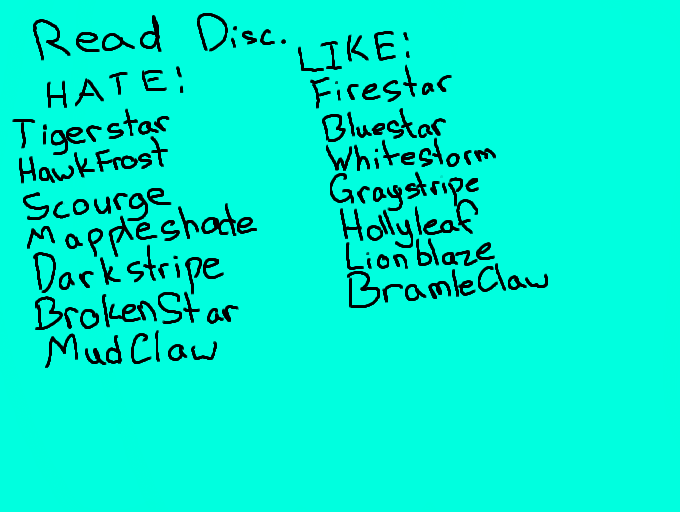 Read Disc.
HATE!
Tigerstar
HawkFrost
Scourge
Mappleshade
Darkstripe
BrokenStar
MudClaw
LIKE!
Firestar
Bluestar
Whitestorm
Graystripe
Hollyleaf
Lionblaze
BrambleClaw